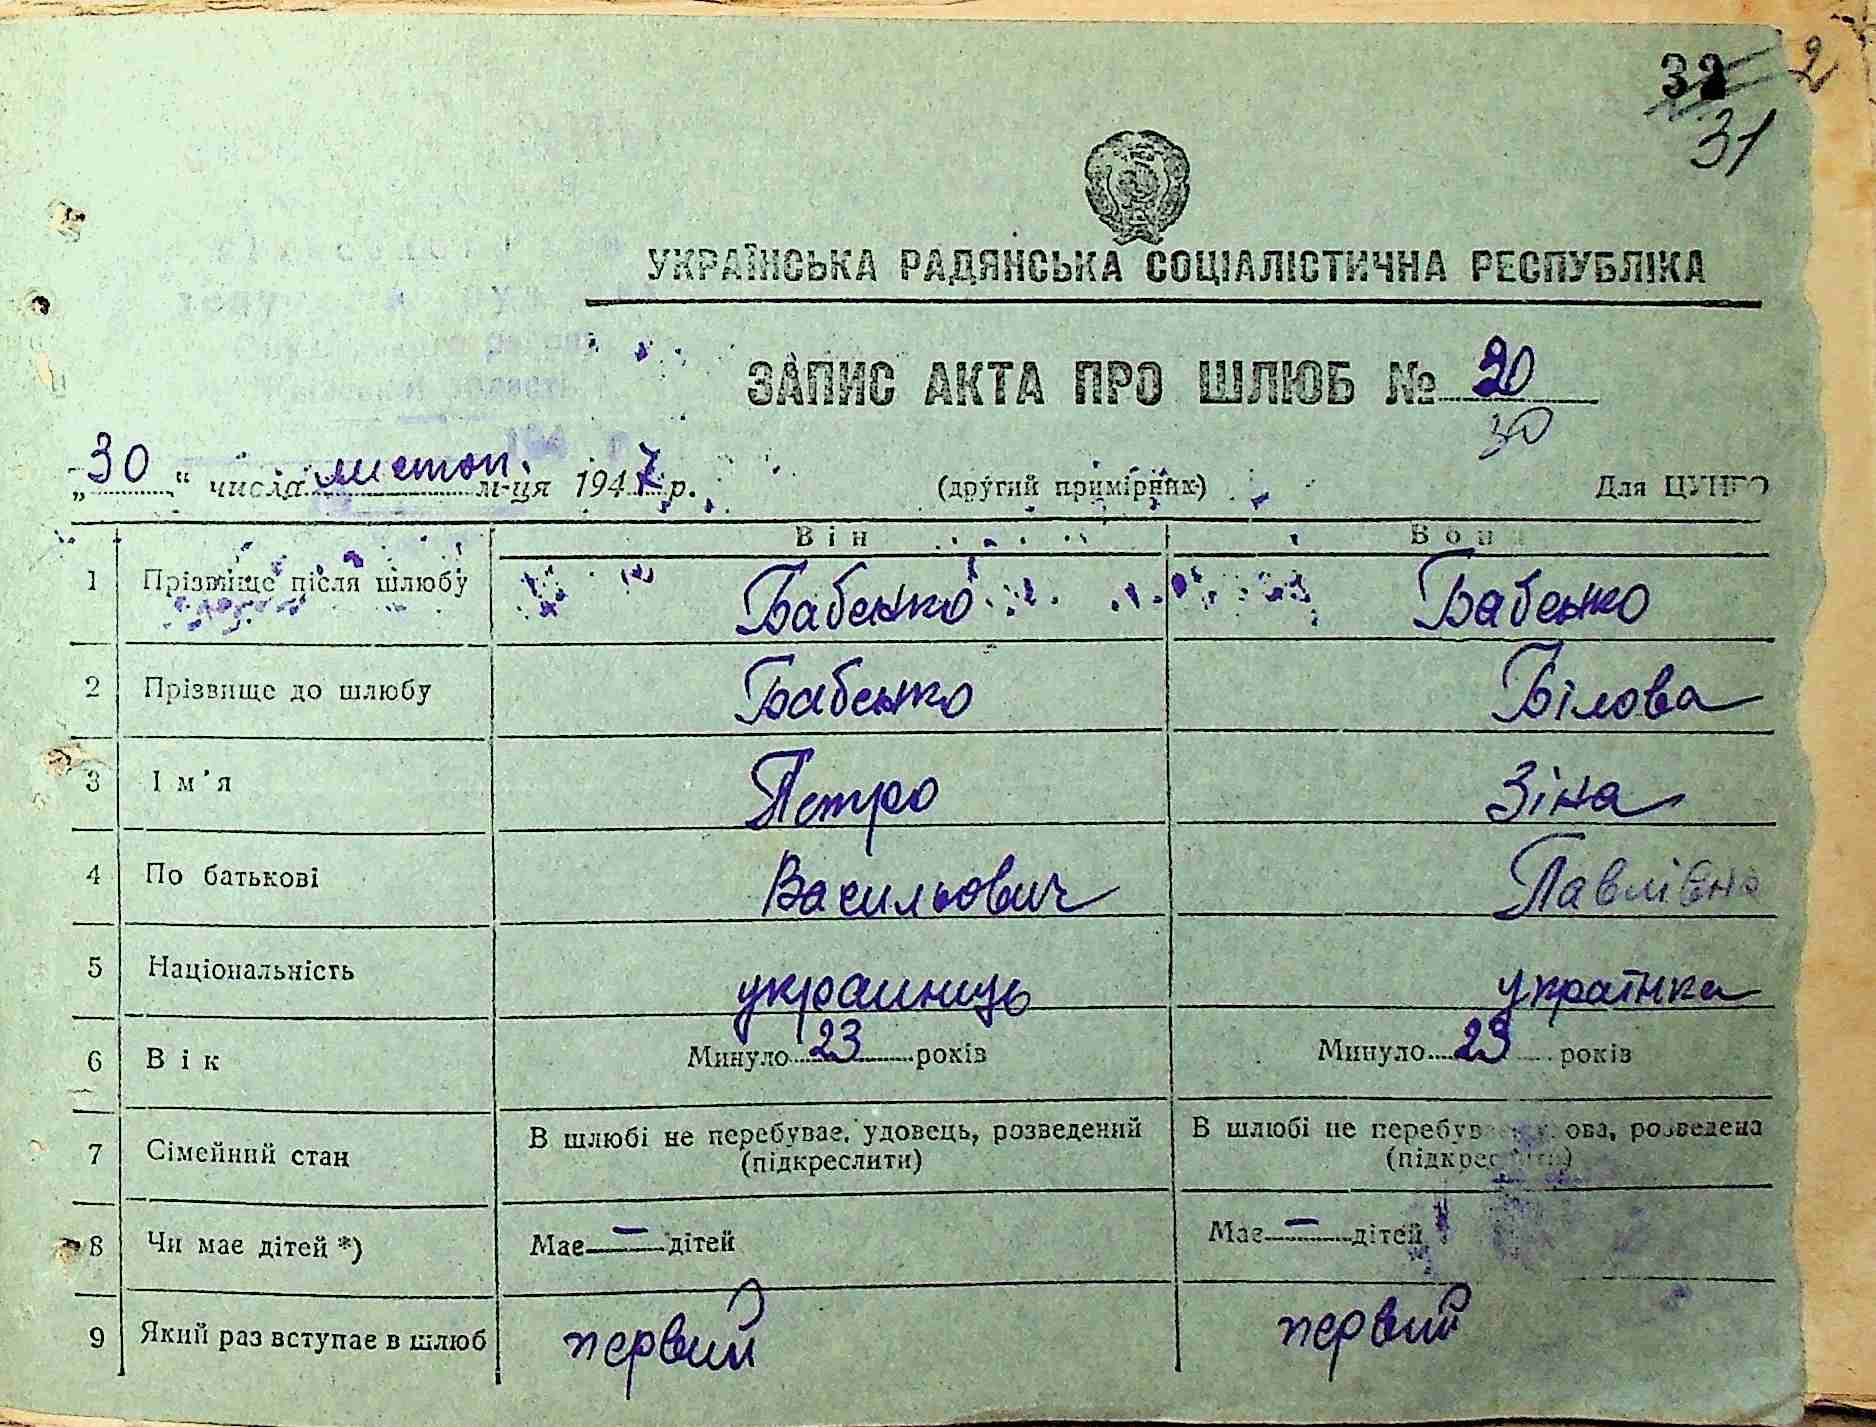 32 2
31
УКРАЇНСЬКА РАДЯНСЬКА СОЦІАЛІСТИЧНА РЕСПУБЛІКА
ЗАПИС АКТА ПРО ШЛЮБ № 20
30
„30“ числа листоп. м-ця 1947 р. (другий примірник) Для ЦУНГО
Він Вон
1 Прізвище після шлюбу Бабенко Бабенко
2 Прізвище до шлюбу Бабенко Білова
3 Ім'я Петро Зіна
4 По батькові Васильович Павлівна
5 Національність украиниць українка
6 Вік Минуло 23 років Минуло 23 років
7 Сімейний стан В шлюбі не перебуває, удовець, розведений В шлюбі не розведена
(підкреслити) (підкреслити)
8 Чи має дітей *) Має — дітей Має — дітей
9 Який раз вступає в шлюб первий первий